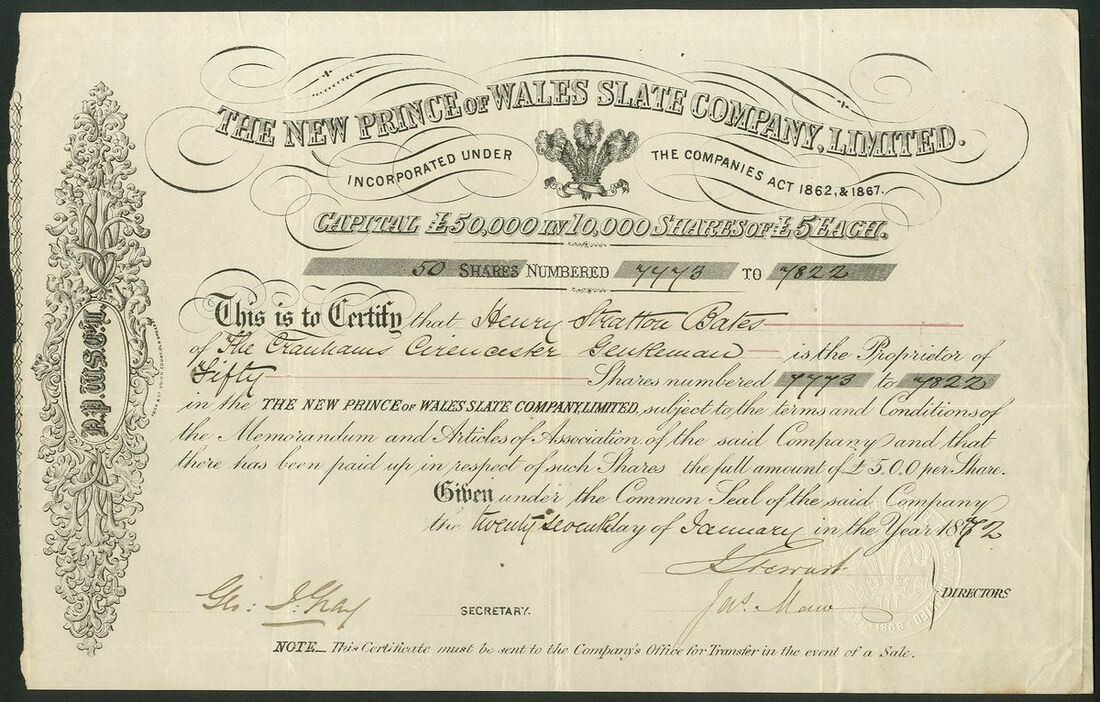 THE NEW PRINCE OF WALES SLATE COMPANY, LIMITED.
INCORPORATED UNDER THE COMPANIES ACT 1862, & 1867.
CAPITAL £50,000 IN 10,000 SHARES OF £5 EACH.
50 SHARES NUMBERED 7773 TO 7822
This is to Certify that Henry Stratton Bates
of The Cranhams Cirencester Gentleman is the Proprietor of
Fifty Shares numbered 7773 to 7822
in the THE NEW PRINCE OF WALES SLATE COMPANY, LIMITED, subject to the terms and Conditions of
the Memorandum and Articles of Association of the said Company and that
there has been paid up in respect of such Shares the full amount of £5.0.0 per Share.
Given under the Common Seal of the said Company
the twenty seventh day of January in the Year 1872
J Stewart
Geo: J. Gray SECRETARY.
DIRECTORS
NOTE_ This Certificate must be sent to the Company's Office for Transfer in the event of a Sale.
1868